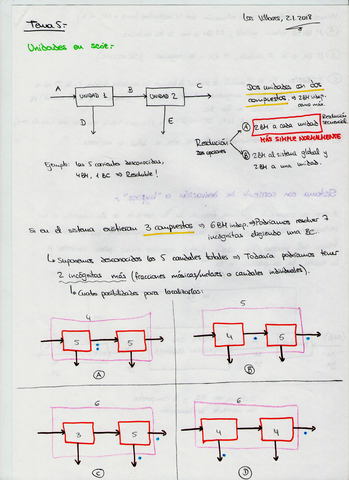 Tema 5.-
Los Villares, 2.1.2018
Unidades en serie.-
A
UNIDAD 1
B
UNIDAD 2
C
D
E
Dos unidades con dos
compuestos ⇒ 2BM indep.
como máx.
Resolución
Dos opciones
A 2 BM a cada unidad
Resolución
secuencial
MÁS SIMPLE NORMALMENTE
B 2 BM al sistema global y
2 BM a una unidad.
Ejemplo: las 5 corrientes desconocidas,
4BM, 1 BC ⇒ Resoluble!
Si en el sistema existieran 3 compuestos ⇒ 6 BM indep. ⇒ Podríamos resolver 7
incógnitas eligiendo una BC.
↳ Suponemos desconocidos los 5 caudales totales ⇒ Todavía podríamos tener
2 incógnitas más (fracciones másicas/molares o caudales individuales).
↳ Cuatro posibilidades para localizarlas:
4
5
5
A
5
4
5
B
6
3
5
C
6
4
4
D